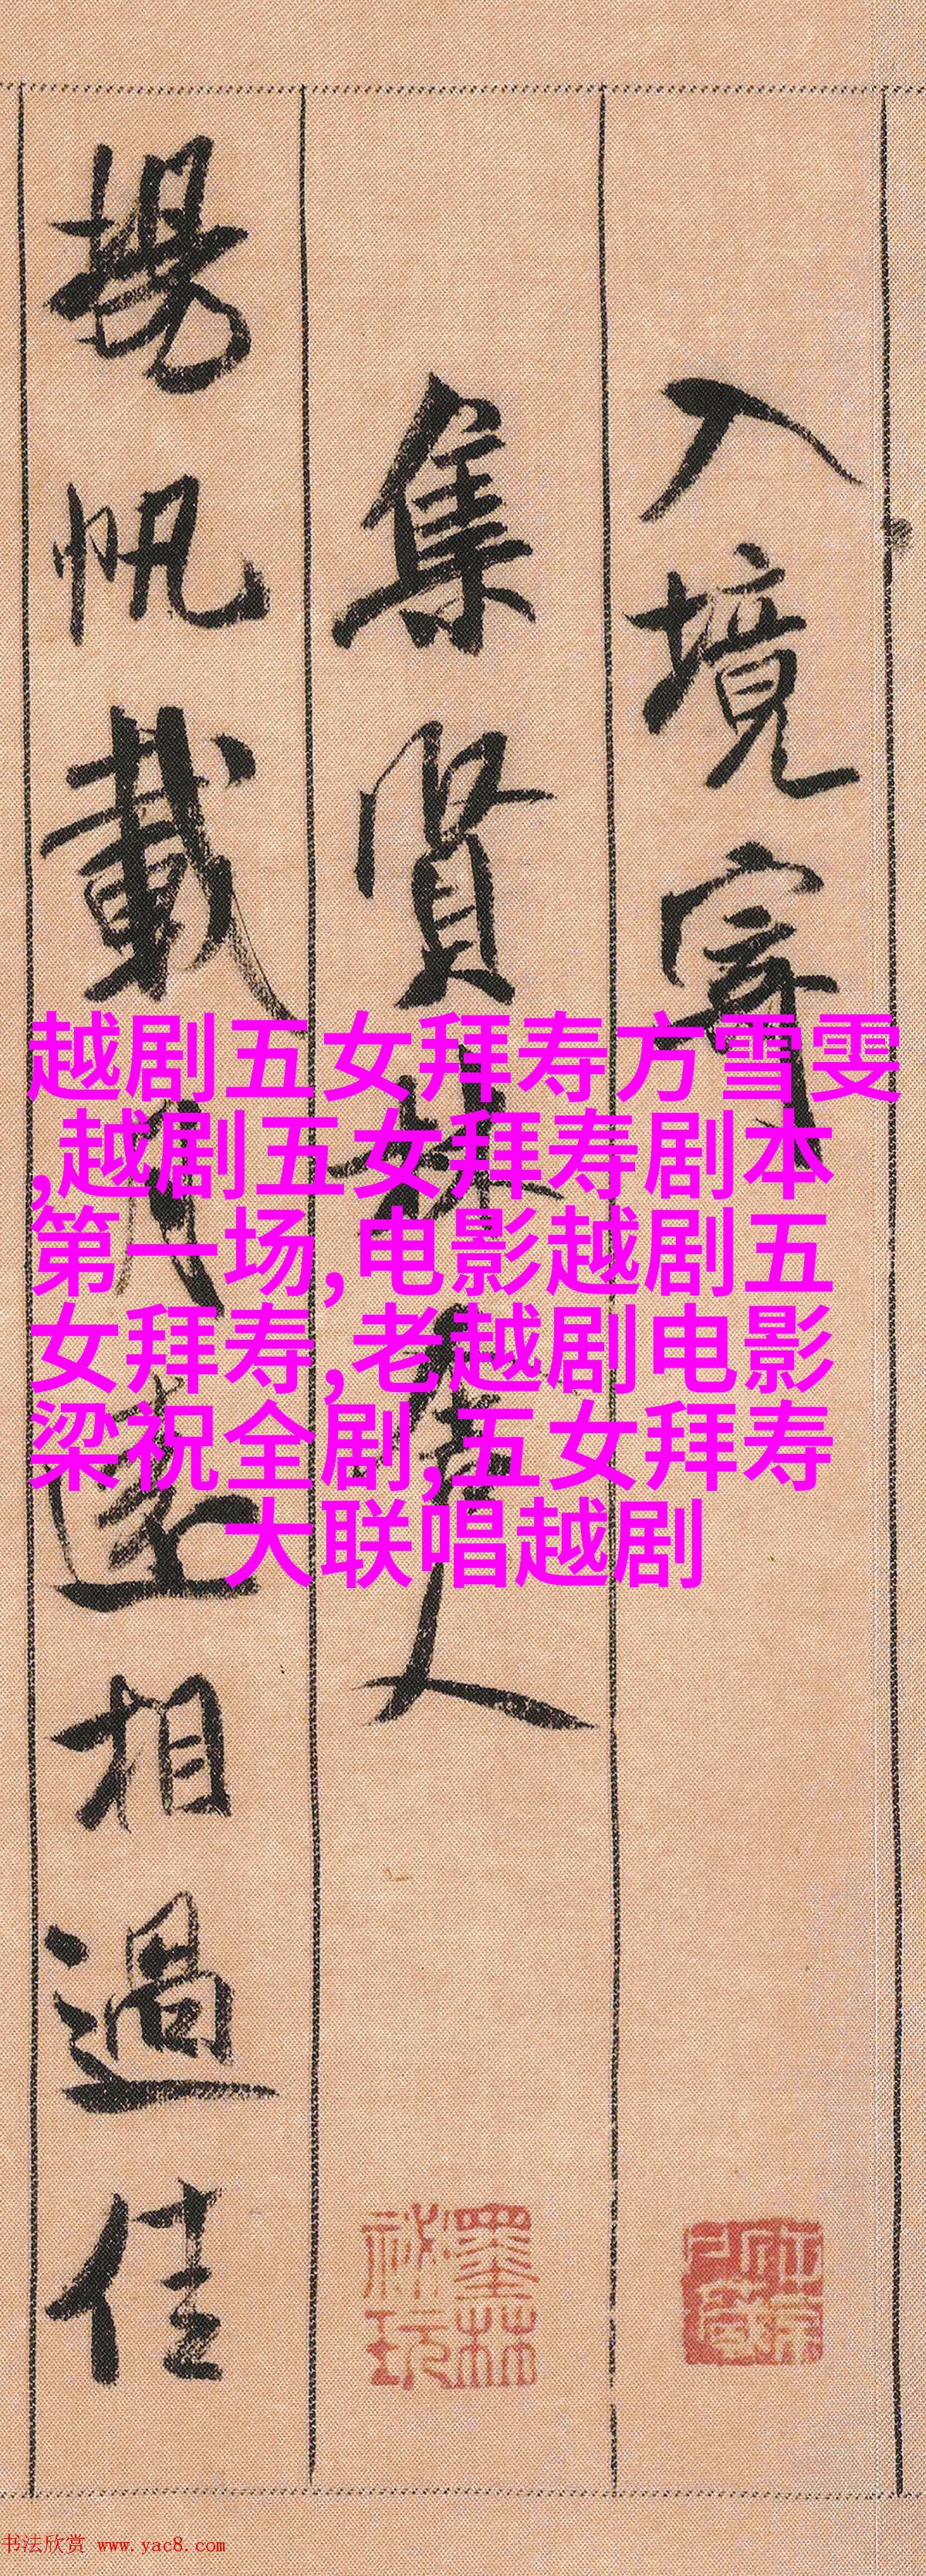 入境寄
集賢林舍人
揚帆載月遠相過佳
越剧五女拜寿方雪雯
,越剧五女拜寿剧本
第一场,电影越剧五
女拜寿,老越剧电影
梁祝全剧,五女拜寿
大联唱越剧
墨林
祕玩
书法欣赏 www.yac8.com